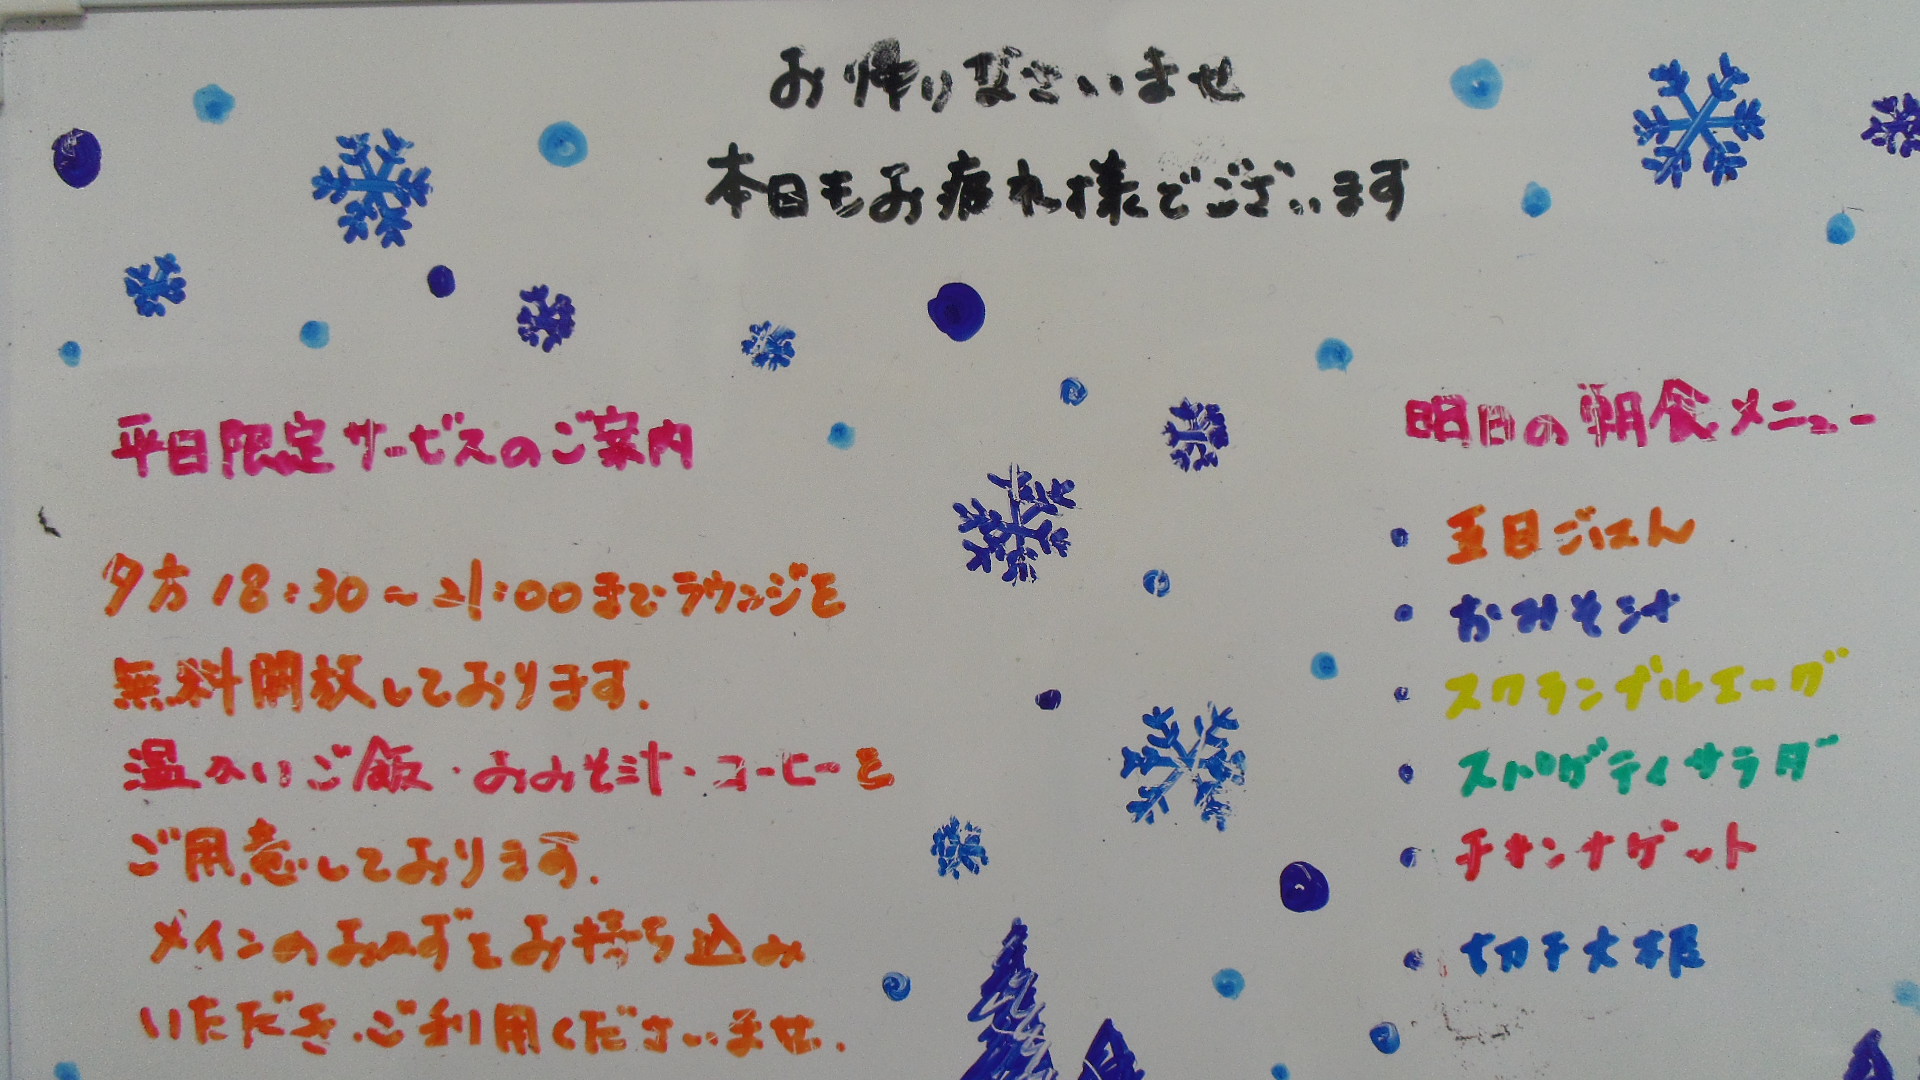 お帰りなさいませ
本日もお疲れ様でございます
平日限定サービスのご案内
夕方18:30～21:00までラウンジを
無料開放しております.
温かいご飯・おみそ汁・コーヒーを
ご用意しております.
メインのおかずをお持ち込み
いただき、ご利用くださいませ.
明日の朝食メニュー
・五目ごはん
・おみそ汁
・スクランブルエッグ
・スパゲティサラダ
・チキンナゲット
・切干大根